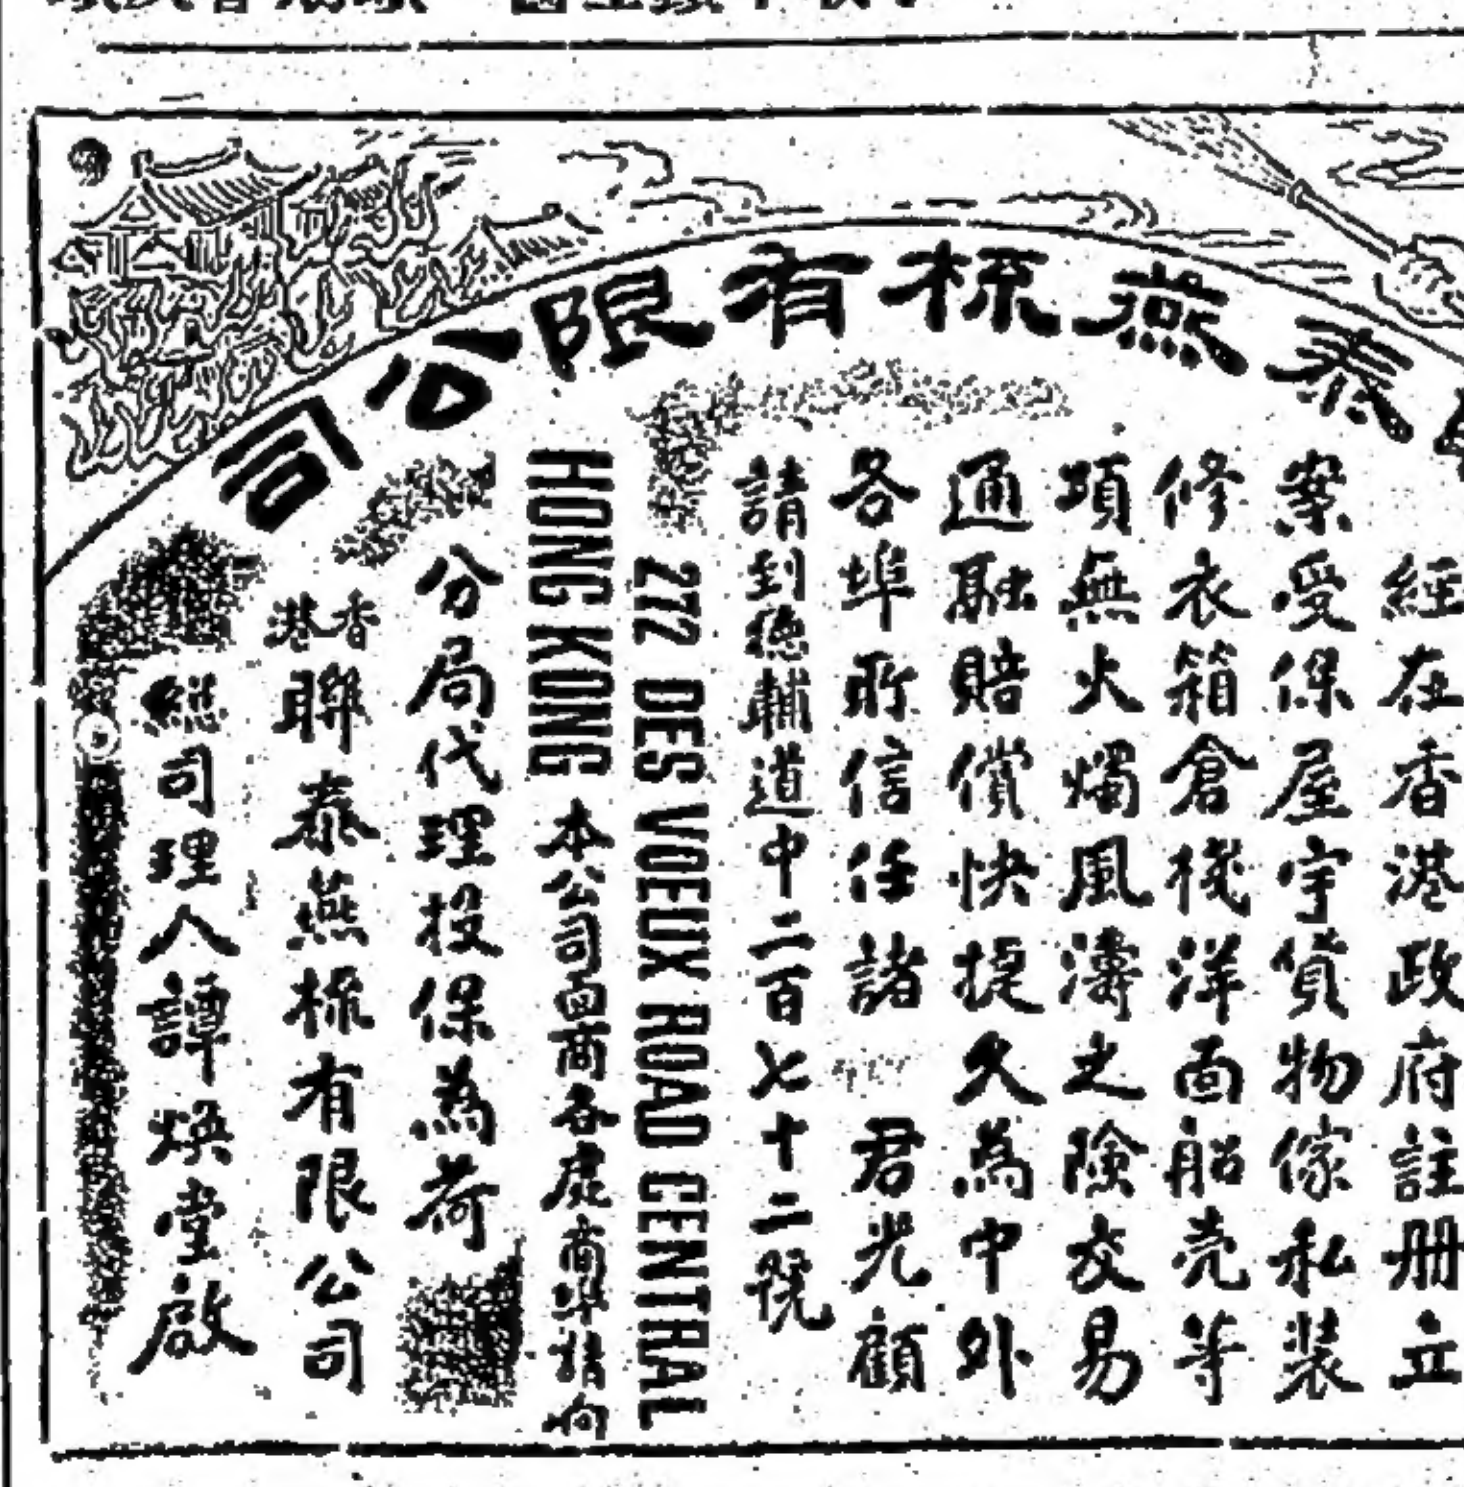 泰燕梳有限公司
經在香港政府註册立
案受保屋宇貨物傢私装
修衣箱倉棧洋面船壳等
項無火燭風濤之險交易
通融賠償快捷久為中外
各埠所信任諸 君光顧
請到德輔道中二百七十二號
272 DES VOEUX ROAD CENTRAL
HONG KONG 本公司面商各處商準請向
分局代理投保為荷
香港聯泰燕梳有限公司
總司理人譚煥堂啟